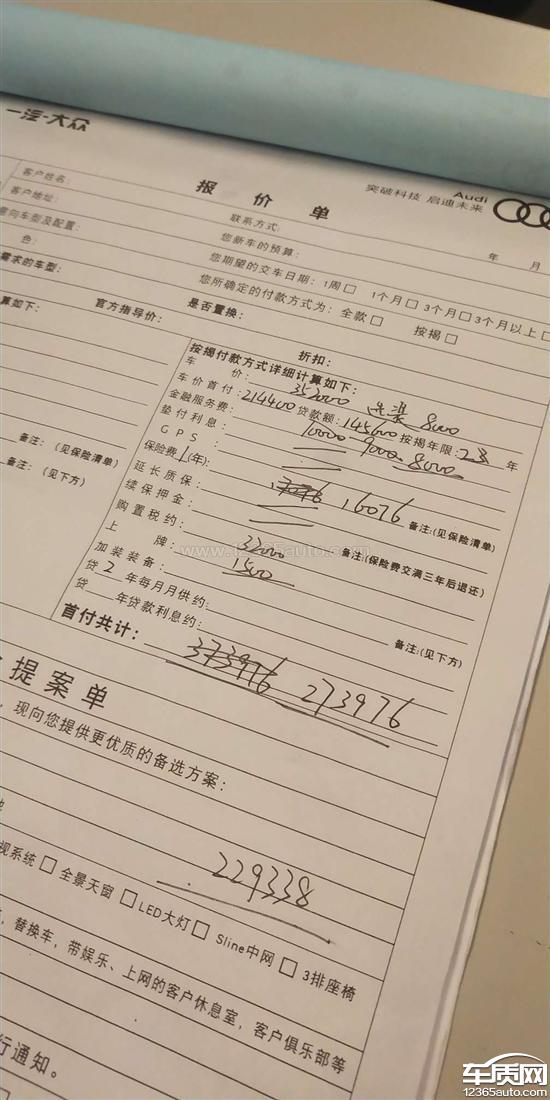 一汽-大众
Audi
突破科技 启迪未来
报价单
年 月
客户姓名：
联系方式：
客户地址：
您新车的预算：
意向车型及配置：
您期望的交车日期：1周□ 1个月□ 3个月□ 3个月以上□
色：
您所确定的付款方式为：全款□ 按揭□
需求的车型：
是否置换：
算如下： 官方指导价：
折扣：
按揭付款方式详细计算如下：
车 价：352000 8000
车价首付：214400 贷款额：145600 按揭年限：23 年
金融服务费：10000 9000 8000
垫付利息：
GPS：
保险费1(年)： 16076 备注：(见保险清单)
延长质保：
续保押金： 备注：(保险费交满三年后退还)
购置税约：32000
上 牌：1500
加装装备： 备注：(见下方)
贷2年每月月供约：
贷 年贷款利息约：
首付共计：373976 273976
备注：(见保险清单)
备注：(见下方)
www.12365auto.com
提案单
，现向您提供更优质的备选方案：
229338
视系统□ 全景天窗□ LED大灯□ Sline中网□ 3排座椅
，替换车，带娱乐、上网的客户休息室，客户俱乐部等
行通知。
车质网
12365auto.com